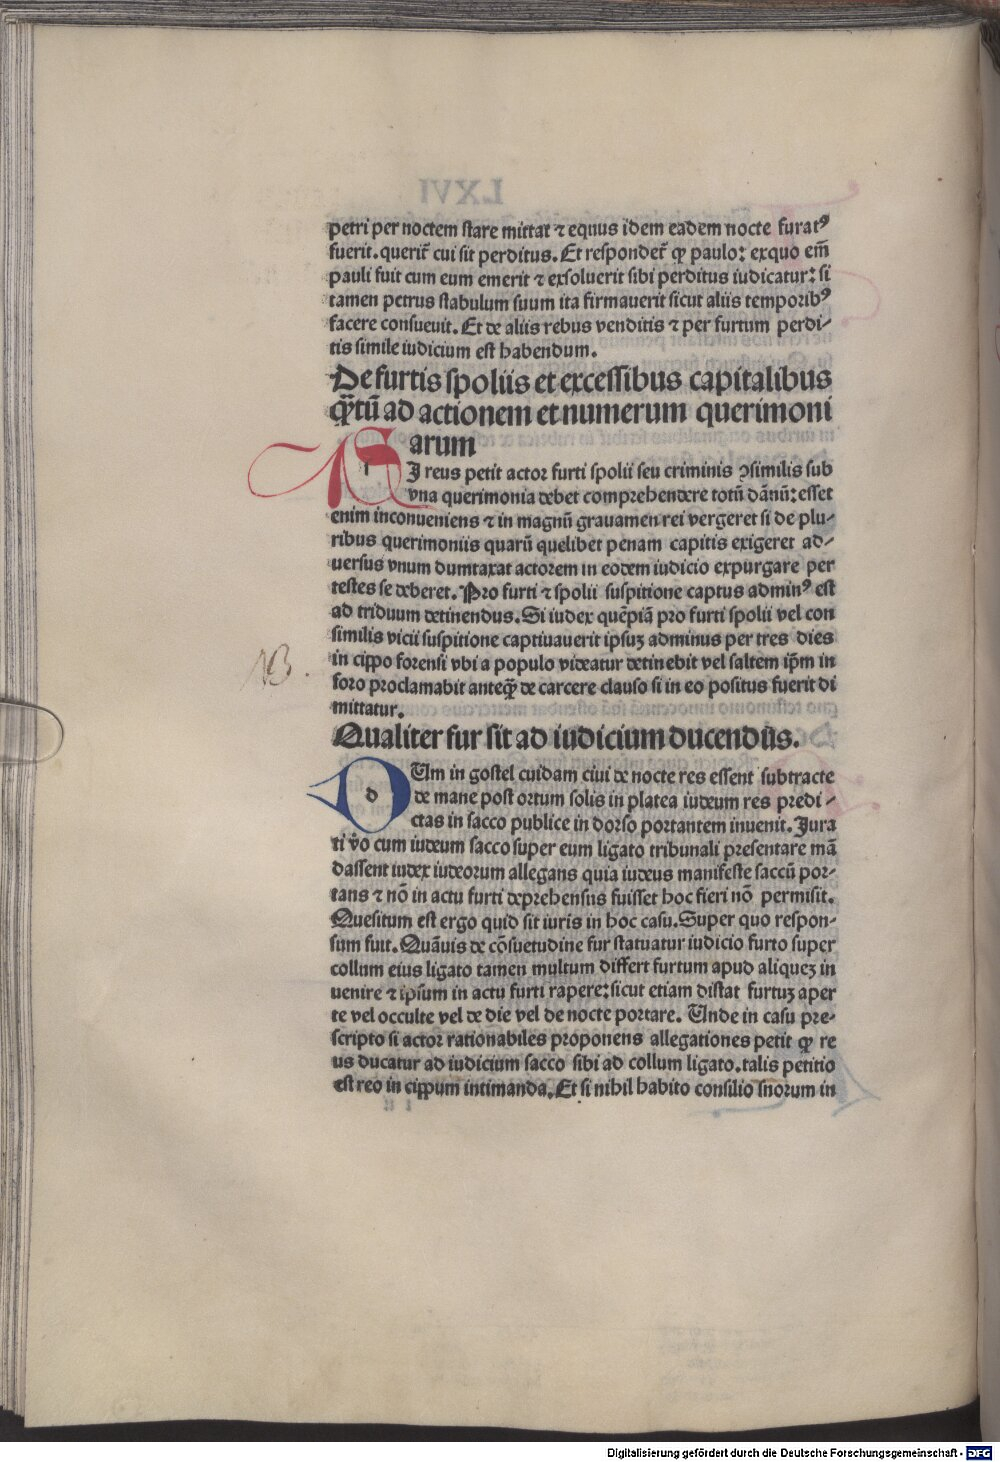 petri per noctem stare mittat ⁊ equus idem eadem nocte furatꝰ
fuerit. querit̃ cui sit perditus. Et respondet̃ ꝙ paulo: exquo em̃
pauli fuit cum eum emerit ⁊ exsoluerit sibi perditus iudicatur: si
tamen petrus stabulum suum ita firmauerit sicut aliis temporibꝰ
facere consueuit. Et de aliis rebus venditis ⁊ per furtum perdi-
tis simile iudicium est habendum.
De furtis spoliis et excessibus capitalibus
q̃tũ ad actionem et numerum querimoni
arum
SI reus petit actor furti spolii seu criminis ꝯsimilis sub
vna querimonia debet comprehendere totũ dãnũ: esset
enim inconueniens ⁊ in magnũ grauamen rei vergeret si de plu-
ribus querimoniis quarũ quelibet penam capitis exigeret ad-
uersus vnum dumtaxat actorem in eodem iudicio expurgare per
testes se deberet. Pro furti ⁊ spolii suspitione captus adminꝰ est
ad triduum detinendus. Si iudex quẽpiã pro furti spolii vel con
similis vicii suspitione captiuauerit ipsuꝫ adminus per tres dies
in cippo forensi vbi a populo videatur detinebit vel saltem ip̃m in
foro proclamabit anteq̃ de carcere clauso si in eo positus fuerit di
mittatur.
NB.
Qualiter fur sit ad iudicium ducendus.
DUm in gostel cuidam ciui de nocte res essent subtracte
de mane post ortum solis in platea iudeum res predi-
ctas in sacco publice in dorso portantem inuenit. Jura
ti v̾o cum iudeum sacco super eum ligato tribunali presentare mã
dassent iudex iudeorum allegans quia iudeus manifeste saccũ por-
tans ⁊ nõ in actu furti deprehensus fuisset hoc fieri nõ permisit.
Quesitum est ergo quid sit iuris in hoc casu. Super quo respon-
sum fuit. Quãuis de cõsuetudine fur statuatur iudicio furto super
collum eius ligato tamen multum differt furtum apud aliqueꝫ in
uenire ⁊ ipsum in actu furti rapere: sicut etiam distat furtuꝫ aper
te vel occulte vel de die vel de nocte portare. Unde in casu pre-
scripto si actor rationabiles proponens allegationes petit ꝙ re
us ducatur ad iudicium sacco sibi ad collum ligato. talis petitio
est reo in cippum intimanda. Et si nihil habito consilio suorum in
Digitalisierung gefördert durch die Deutsche Forschungsgemeinschaft - DFG